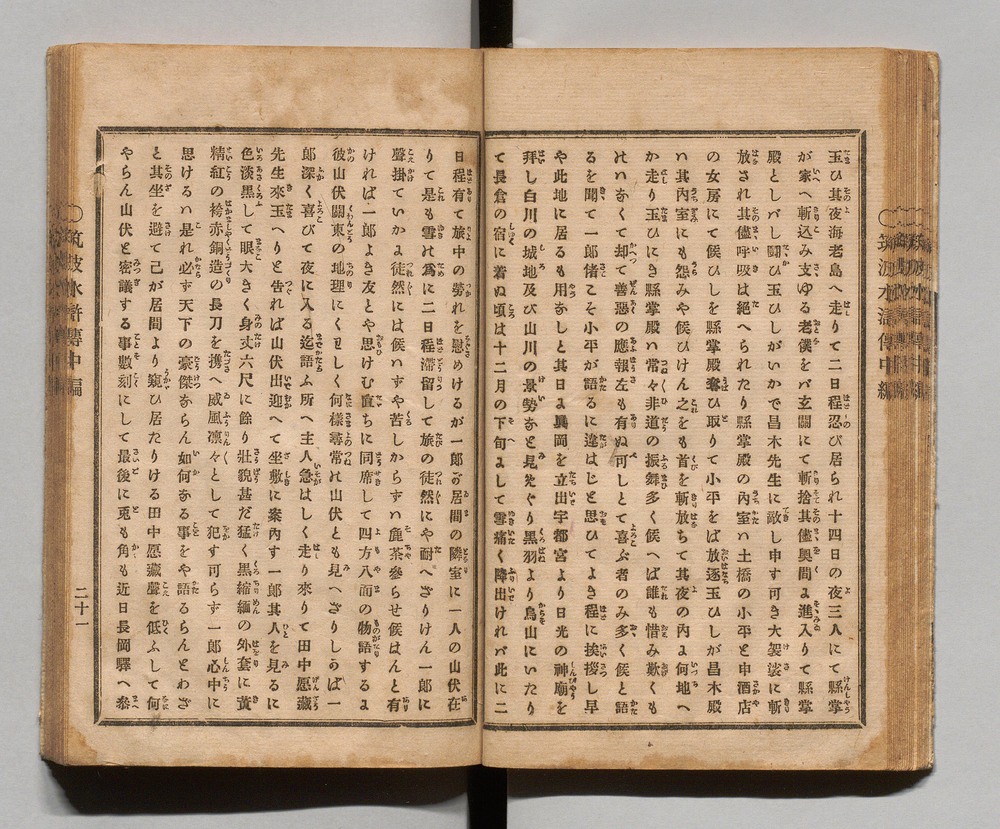 玉ひ其夜海老島へ走りて二日程忍び居られ十四日の夜三人にて縣掌
が家へ斬込み支ゆる老僕をバ玄關にて斬捨其儘奥間に進入りて縣掌
殿としバし鬪ひ玉ひしがいかで昌木先生に敵し申す可き大袈裟に斬
放され其儘呼吸は絶へられたり縣掌殿の內室ハ土橋の小平と申酒店
の女房にて候ひしを縣掌殿奪ひ取りて小平をば放逐玉ひしが昌木殿
ハ其內室にも怨みや候ひけん之をも首を斬放ちて其夜の內に何地へ
か走り玉ひにき縣掌殿ハ常々非道の振舞多く候へば誰も惜み歎くも
のハなくて却て善惡の應報左も有ぬ可しとて喜ぶ者のみ多く候と語
るを聞て一郎偖こそ小平が語るに違はじと思ひてよき程に挨拶し早
や此地に居るも用なしと其日眞岡を立出宇都宮より日光の神廟を
拜し白川の城地及び山川の景勢など見めぐり黒羽より烏山にいたり
て長倉の宿に着ぬ頃は十二月の下旬にして雪痛く降出けれバ此に二
日程有て旅中の勞れを慰めけるが一郎の居間の隣室に一人の山伏在
りて是も雪の爲に二日程滯留して旅の徒然にや耐へざりけん一郎に
聲掛ていかに徒然には候ハずや苦しからずハ麁茶參らせ候はんと有
ければ一郎よき友とや思けむ直ちに同席して四方八面の物語するに
彼山伏關東の地理にくはしく何樣尋常の山伏とも見へざりしらば一
郎深く喜びて夜に入る迄語ふ所へ主人急はしく走り來りて田中愿藏
先生來玉へりと告れば山伏出迎へて坐敷に案內す一郎其人を見るに
色淡黒して眼大きく身丈六尺に餘り壯貌甚だ猛く黒縮緬の外套に蒖
精紅の袴赤銅造の長刀を携へ威風凛々として犯す可らず一郎心中に
思けるハ是れ必ず天下の豪傑ならん如何なる事をや語るらんとわざ
と其坐を避て己が居間より窺ひ居たりける田中愿藏聲を低ふして何
やらん山伏と密議する事數刻にして最後に兎も角も近日長岡驛へ參
筑波水滸傳中編
二十一